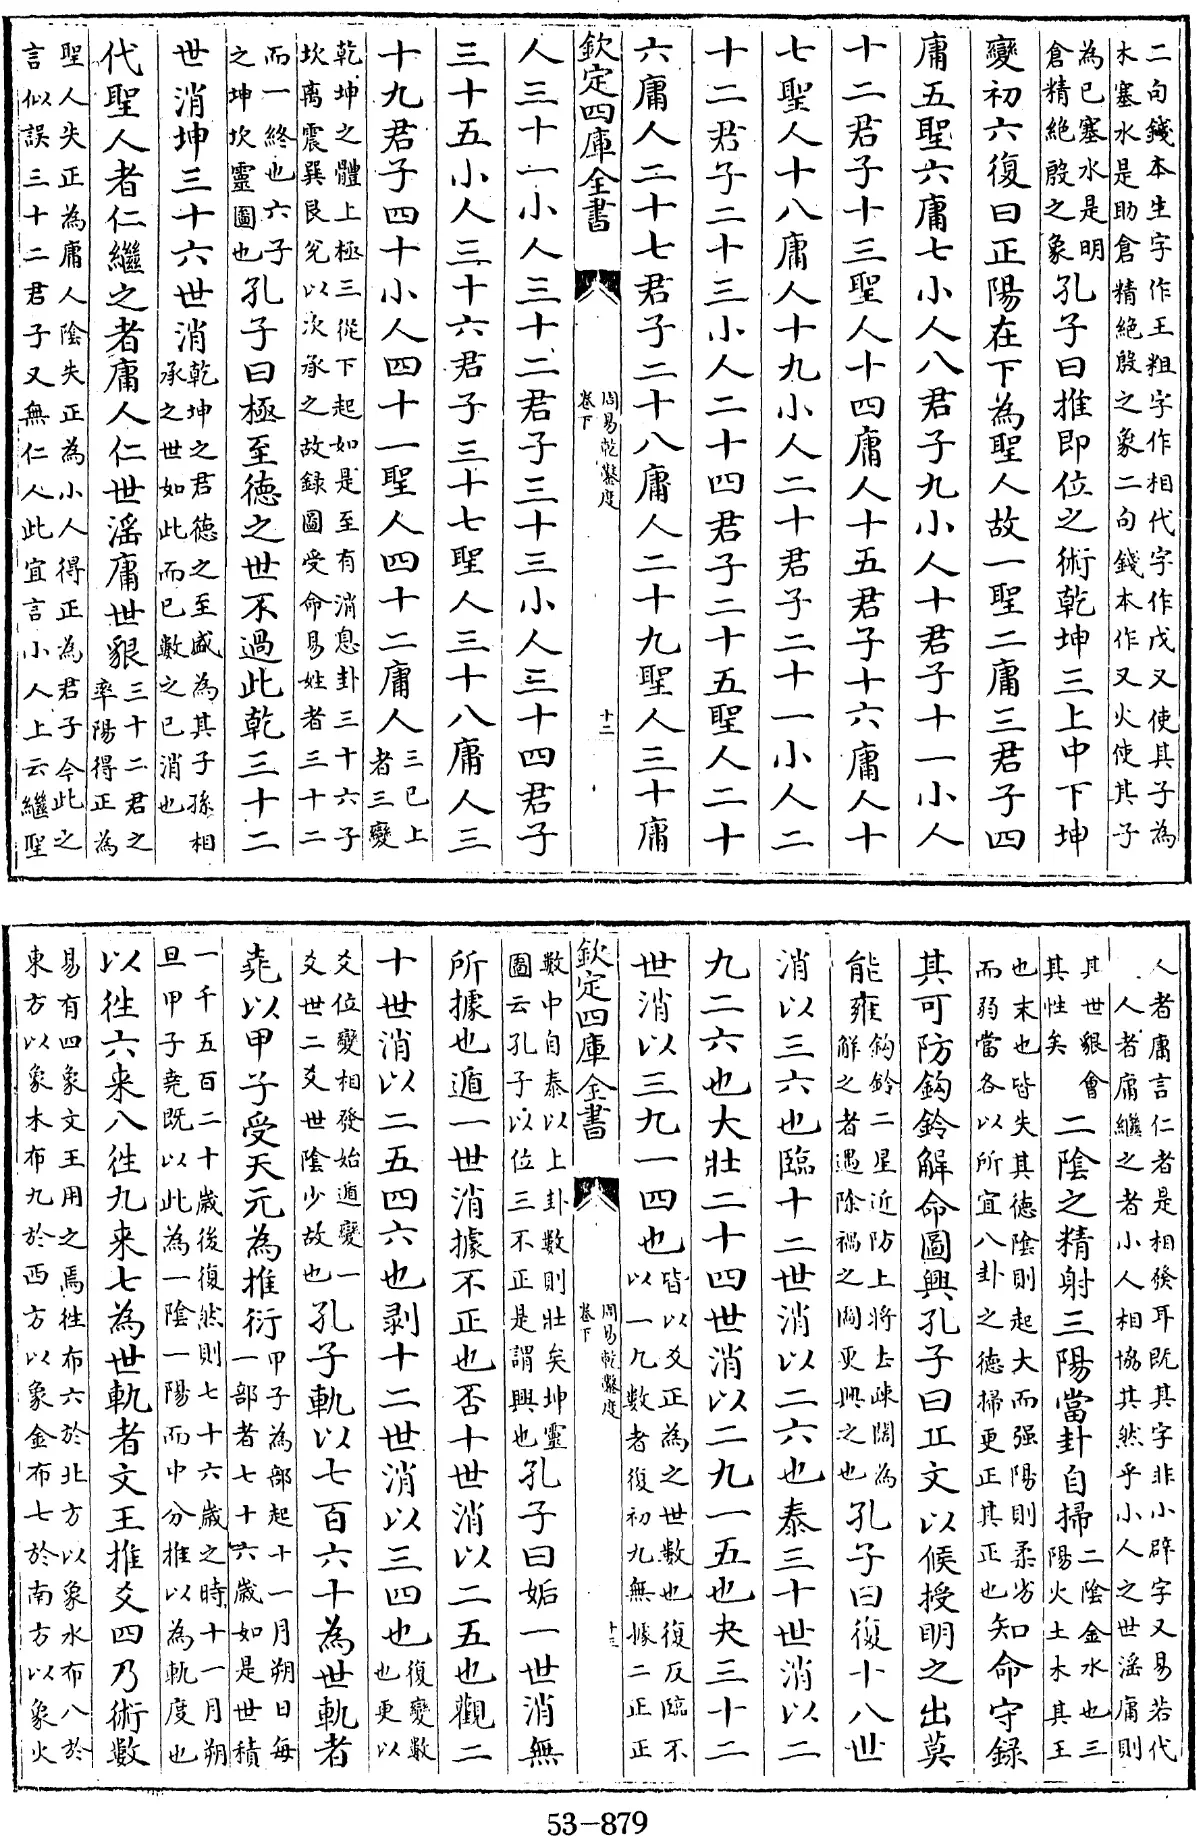 二句錢本生字作王粗字作相代字作戊又使其子為
木塞水是助倉精絶殷之象二句錢本作又火使其子
為已塞水是明
倉精絶殷之象
孔子曰推即位之術乾坤三上中下坤
變初六復曰正陽在下為聖人故一聖二庸三君子四
庸五聖六庸七小人八君子九小人十君子十一小人
十二君子十三聖人十四庸人十五君子十六庸人十
七聖人十八庸人十九小人二十君子二十一小人二
十二君子二十三小人二十四君子二十五聖人二十
六庸人二十七君子二十八庸人二十九聖人三十庸
欽定四庫全書
周易乾鑿度
卷下
十二
人三十一小人三十二君子三十三小人三十四君子
三十五小人三十六君子三十七聖人三十八庸人三
十九君子四十小人四十一聖人四十二庸人
三已上
者三變
乾坤之體上極三從下起如是至有消息卦三十六子
坎离震巽艮兌以次承之故録圖受命易姓者三十二
而一終也六子
之坤坎靈圖也
孔子曰極至徳之世不過此乾三十二
世消坤三十六世消
乾坤之君德之至盛為其子孫相
承之世如此而已數之已消也
代聖人者仁繼之者庸人仁世滛庸世貇
三十二君之
率陽得正為
聖人失正為庸人陰失正為小人得正為君子今此之
言似誤三十二君子又無仁人此宜言小人上云繼聖
人者庸言仁者是相發耳既其字非小辟字又易若代
人者庸繼之者小人相協其然乎小人之世滛庸則
其世貇會
其性矣
二陰之精射三陽當卦自掃
二陰金水也三
陽火土木其王
也末也皆失其德陰則起大而强陽則柔劣
而弱當各以所宜八卦之德掃更正其正也
知命守録
其可防鈎鈴解命圖興孔子曰正文以候授明之出莫
能雍
鈎鈴二星近防上將去疎闊為
解之者遇除禍之闗更興之也
孔子曰復十八世
消以三六也臨十二世消以二六也泰三十世消以二
九二六也大壯二十四世消以二九一五也夬三十二
世消以三九一四也
皆以爻正為之世數也復反臨不
以一九數者復初九無據二正正
欽定四庫全書
周易乾鑿度
卷下
十三
數中自泰以上卦數則壯矣坤靈
圖云孔子以位三不正是謂興也
孔子曰姤一世消無
所據也遁一世消據不正也否十世消以二五也觀二
十世消以二五四六也剥十二世消以三四也
復變數
也更以
爻位變相發始遁變一
爻世二爻世陰少故也
孔子軌以七百六十為世軌者
堯以甲子受天元為推衍
甲子為部起十一月朔日每
一部者七十六歲如是世積
一千五百二十歲後復然則七十六歲之時十一月朔
旦甲子堯既以此為一陰一陽而中分推以為軌度也
以徃六来八徃九来七為世軌者文王推爻四乃術數
易有四象文王用之焉徃布六於北方以象水布八於
東方以象木布九於西方以象金布七於南方以象火
53-879